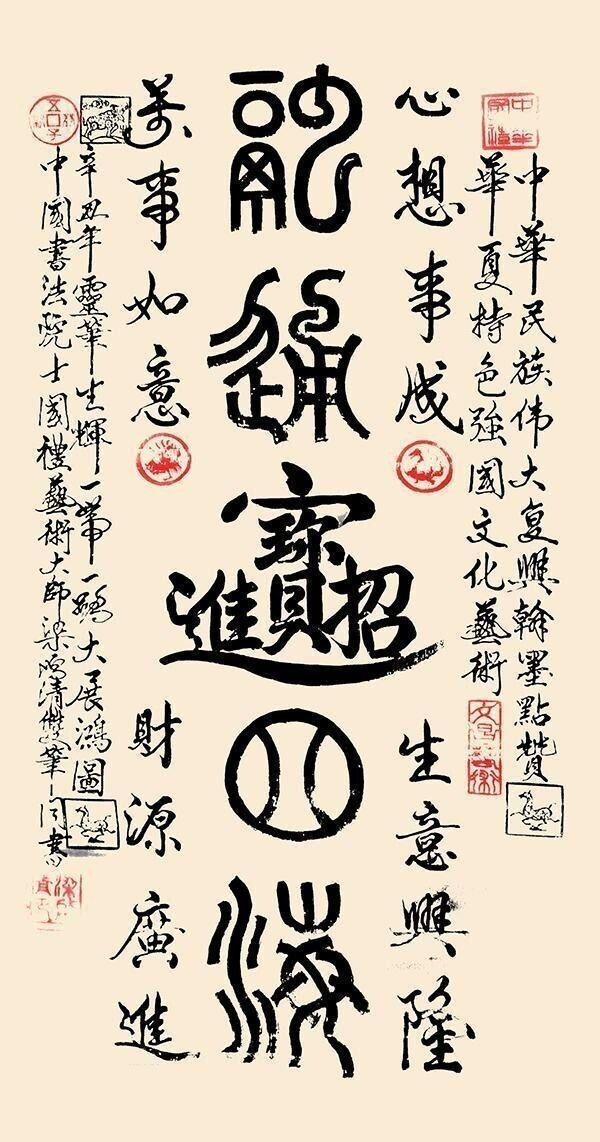 中華民族伟大复興翰墨點贊
華夏特色強國文化藝術
心想事成
生意興隆
融通
招財進寶
四海
萬事如意
財源廣進
辛丑年靈華生輝一帶一路大展鴻圖
中國書法院士國禮藝術大師梁清雙筆同書